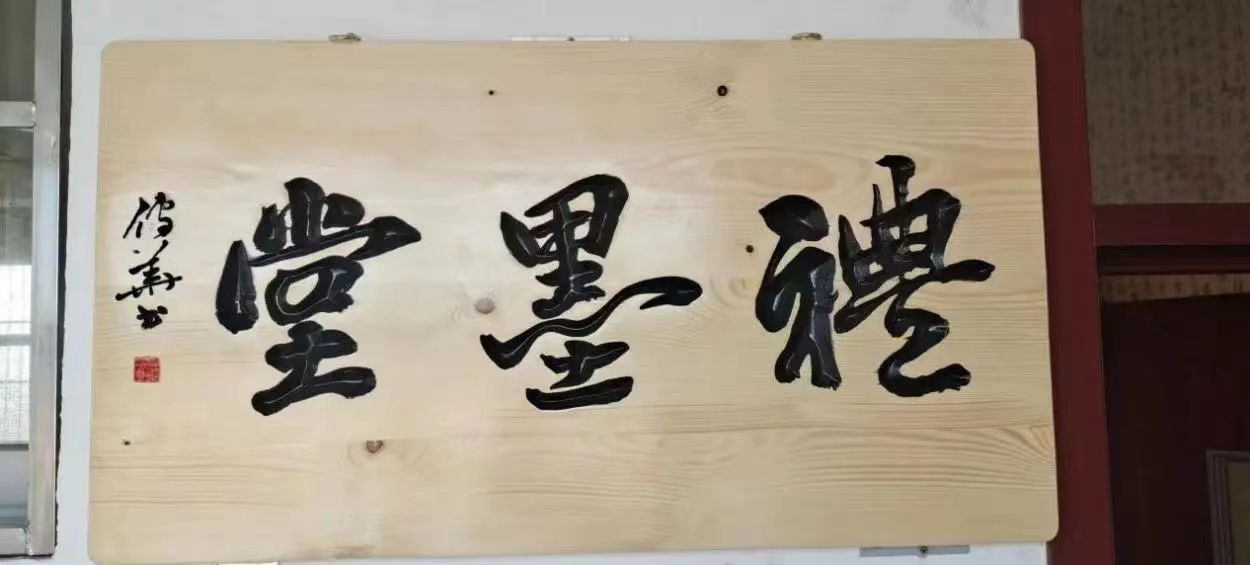 禮墨堂
傳華书